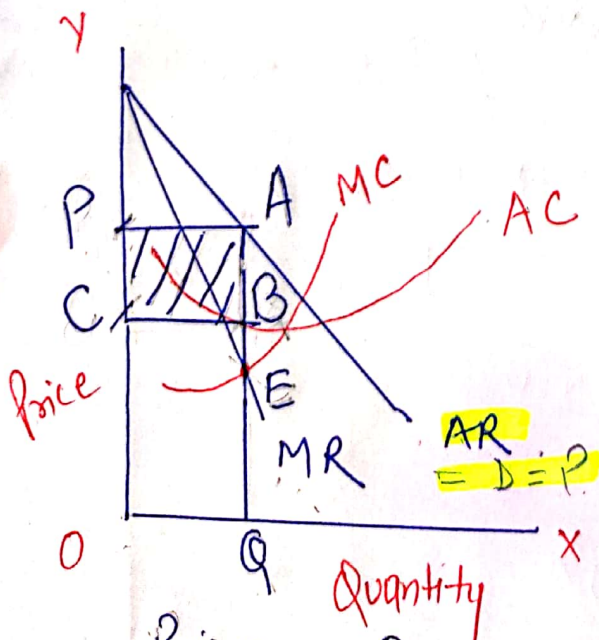 Y
P
A
MC
AC
C
B
Price
E
MR
AR
= D = P
O
Q
X
Quantity